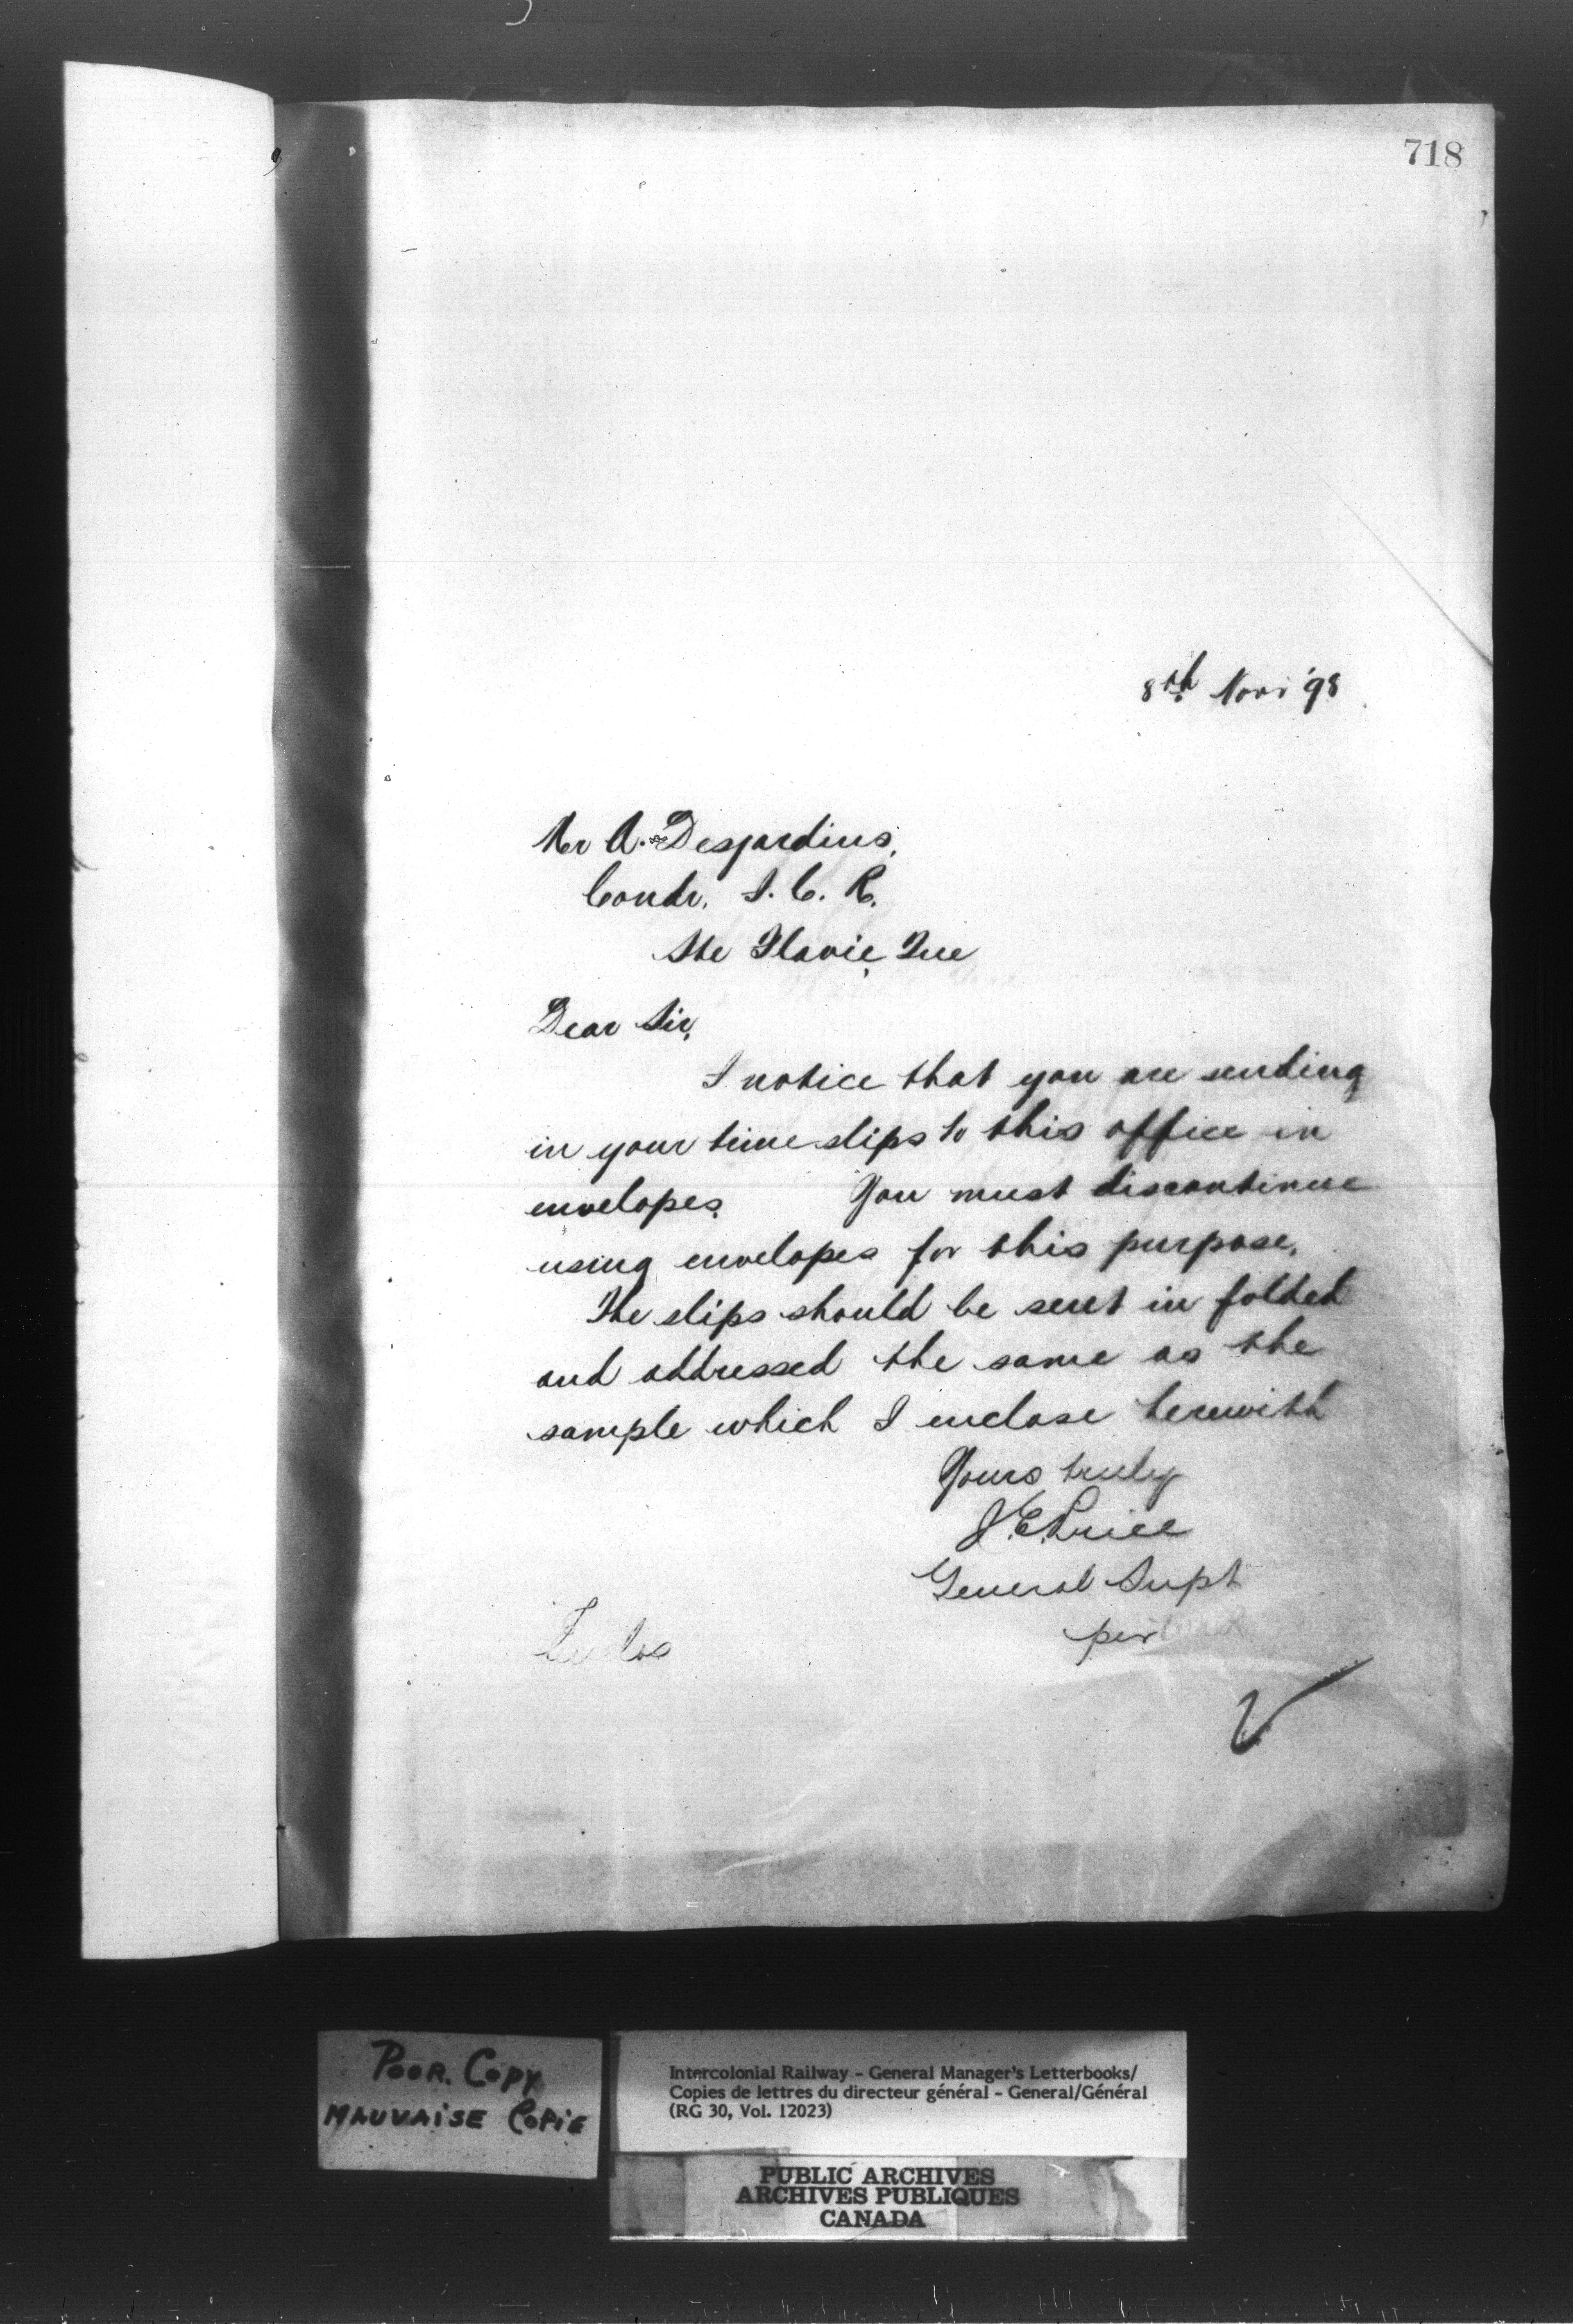 718
8th Nov. '98
Mr A. Desjardins,
Condr. I. C. R.
Ste Flavie, Que
Dear Sir,
I notice that you are sending
in your time slips to this office in
envelopes. You must discontinue
using envelopes for this purpose.
The slips should be sent in folded
and addressed the same as the
sample which I enclose herewith
Yours truly
J.E. Price
General Supt
per
POOR. COPY
MAUVAISE COPIE
Intercolonial Railway - General Manager's Letterbooks/
Copies de lettres du directeur général - General/Général
(RG 30, Vol. 12023)
PUBLIC ARCHIVES
ARCHIVES PUBLIQUES
CANADA